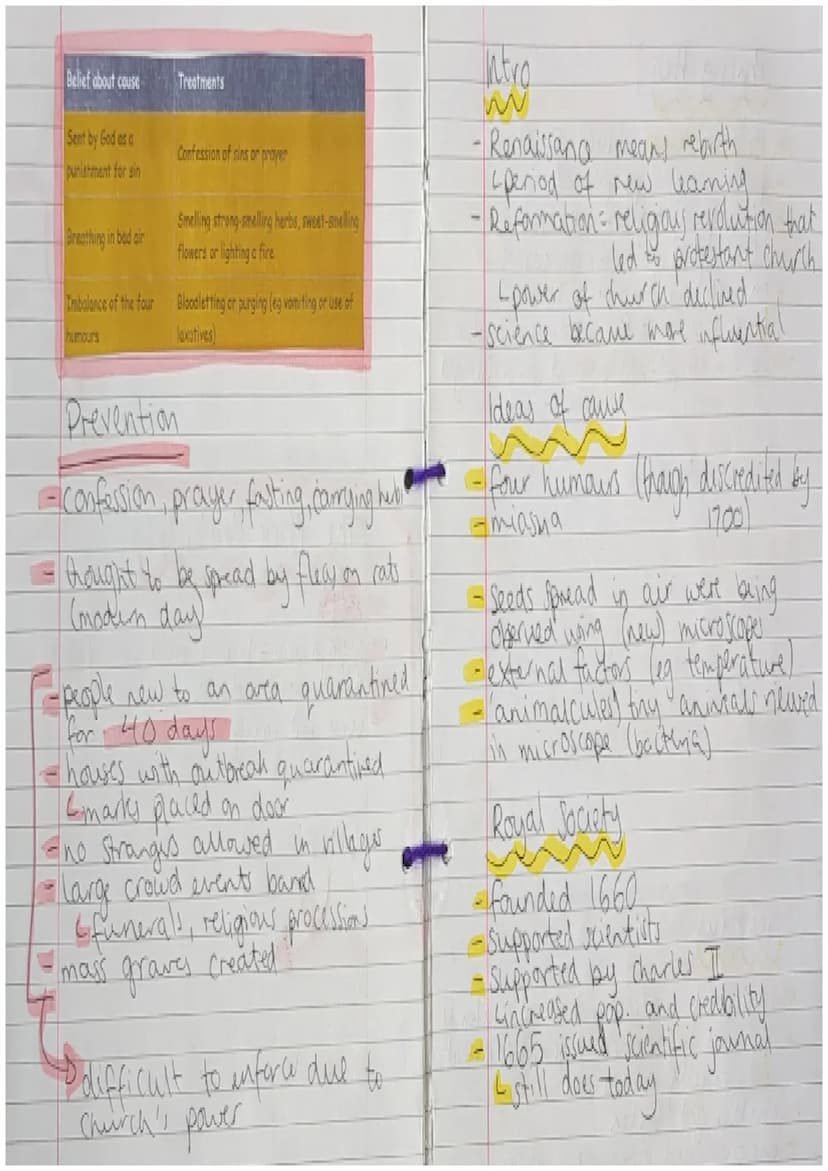 Belief about cause Treatments
Sent by God as a
punishment for sin
Confession of sins or prayer
Breathing in bad air
Smelling strong-smelling herbs, sweet-smelling
flowers or lighting a fire
Imbalance of the four
humours
Bloodletting or purging (eg vomiting or use of
laxatives)
Prevention
- confession, prayer, fasting, carrying herbs
- thought to be spread by fleas on rats
(modern day)
- people new to an area quarantined
for 40 days
- houses with outbreak quarantined
↳ marks placed on door
- no strangers allowed in villages
- large crowd events band
↳ funerals, religious processions
- mass graves created
→ difficult to enforce due to
church's power
Intro
- Renaissance means rebirth
↳ period of new learning
- Reformation = religious revolution that
led to protestant church
↳ power of church declined
- science became more influential
Ideas of cause
- four humours (though discredited by
1700)
- miasma
- seeds spread in air were being
observed using (new) microscope
- external factors (eg temperature)
- 'animalcules' tiny animals viewed
in microscope (bacteria)
Royal Society
- founded 1660
- supported scientists
- supported by charles II
↳ increased pop. and credibility
- 1665 issued scientific journal
↳ still does today